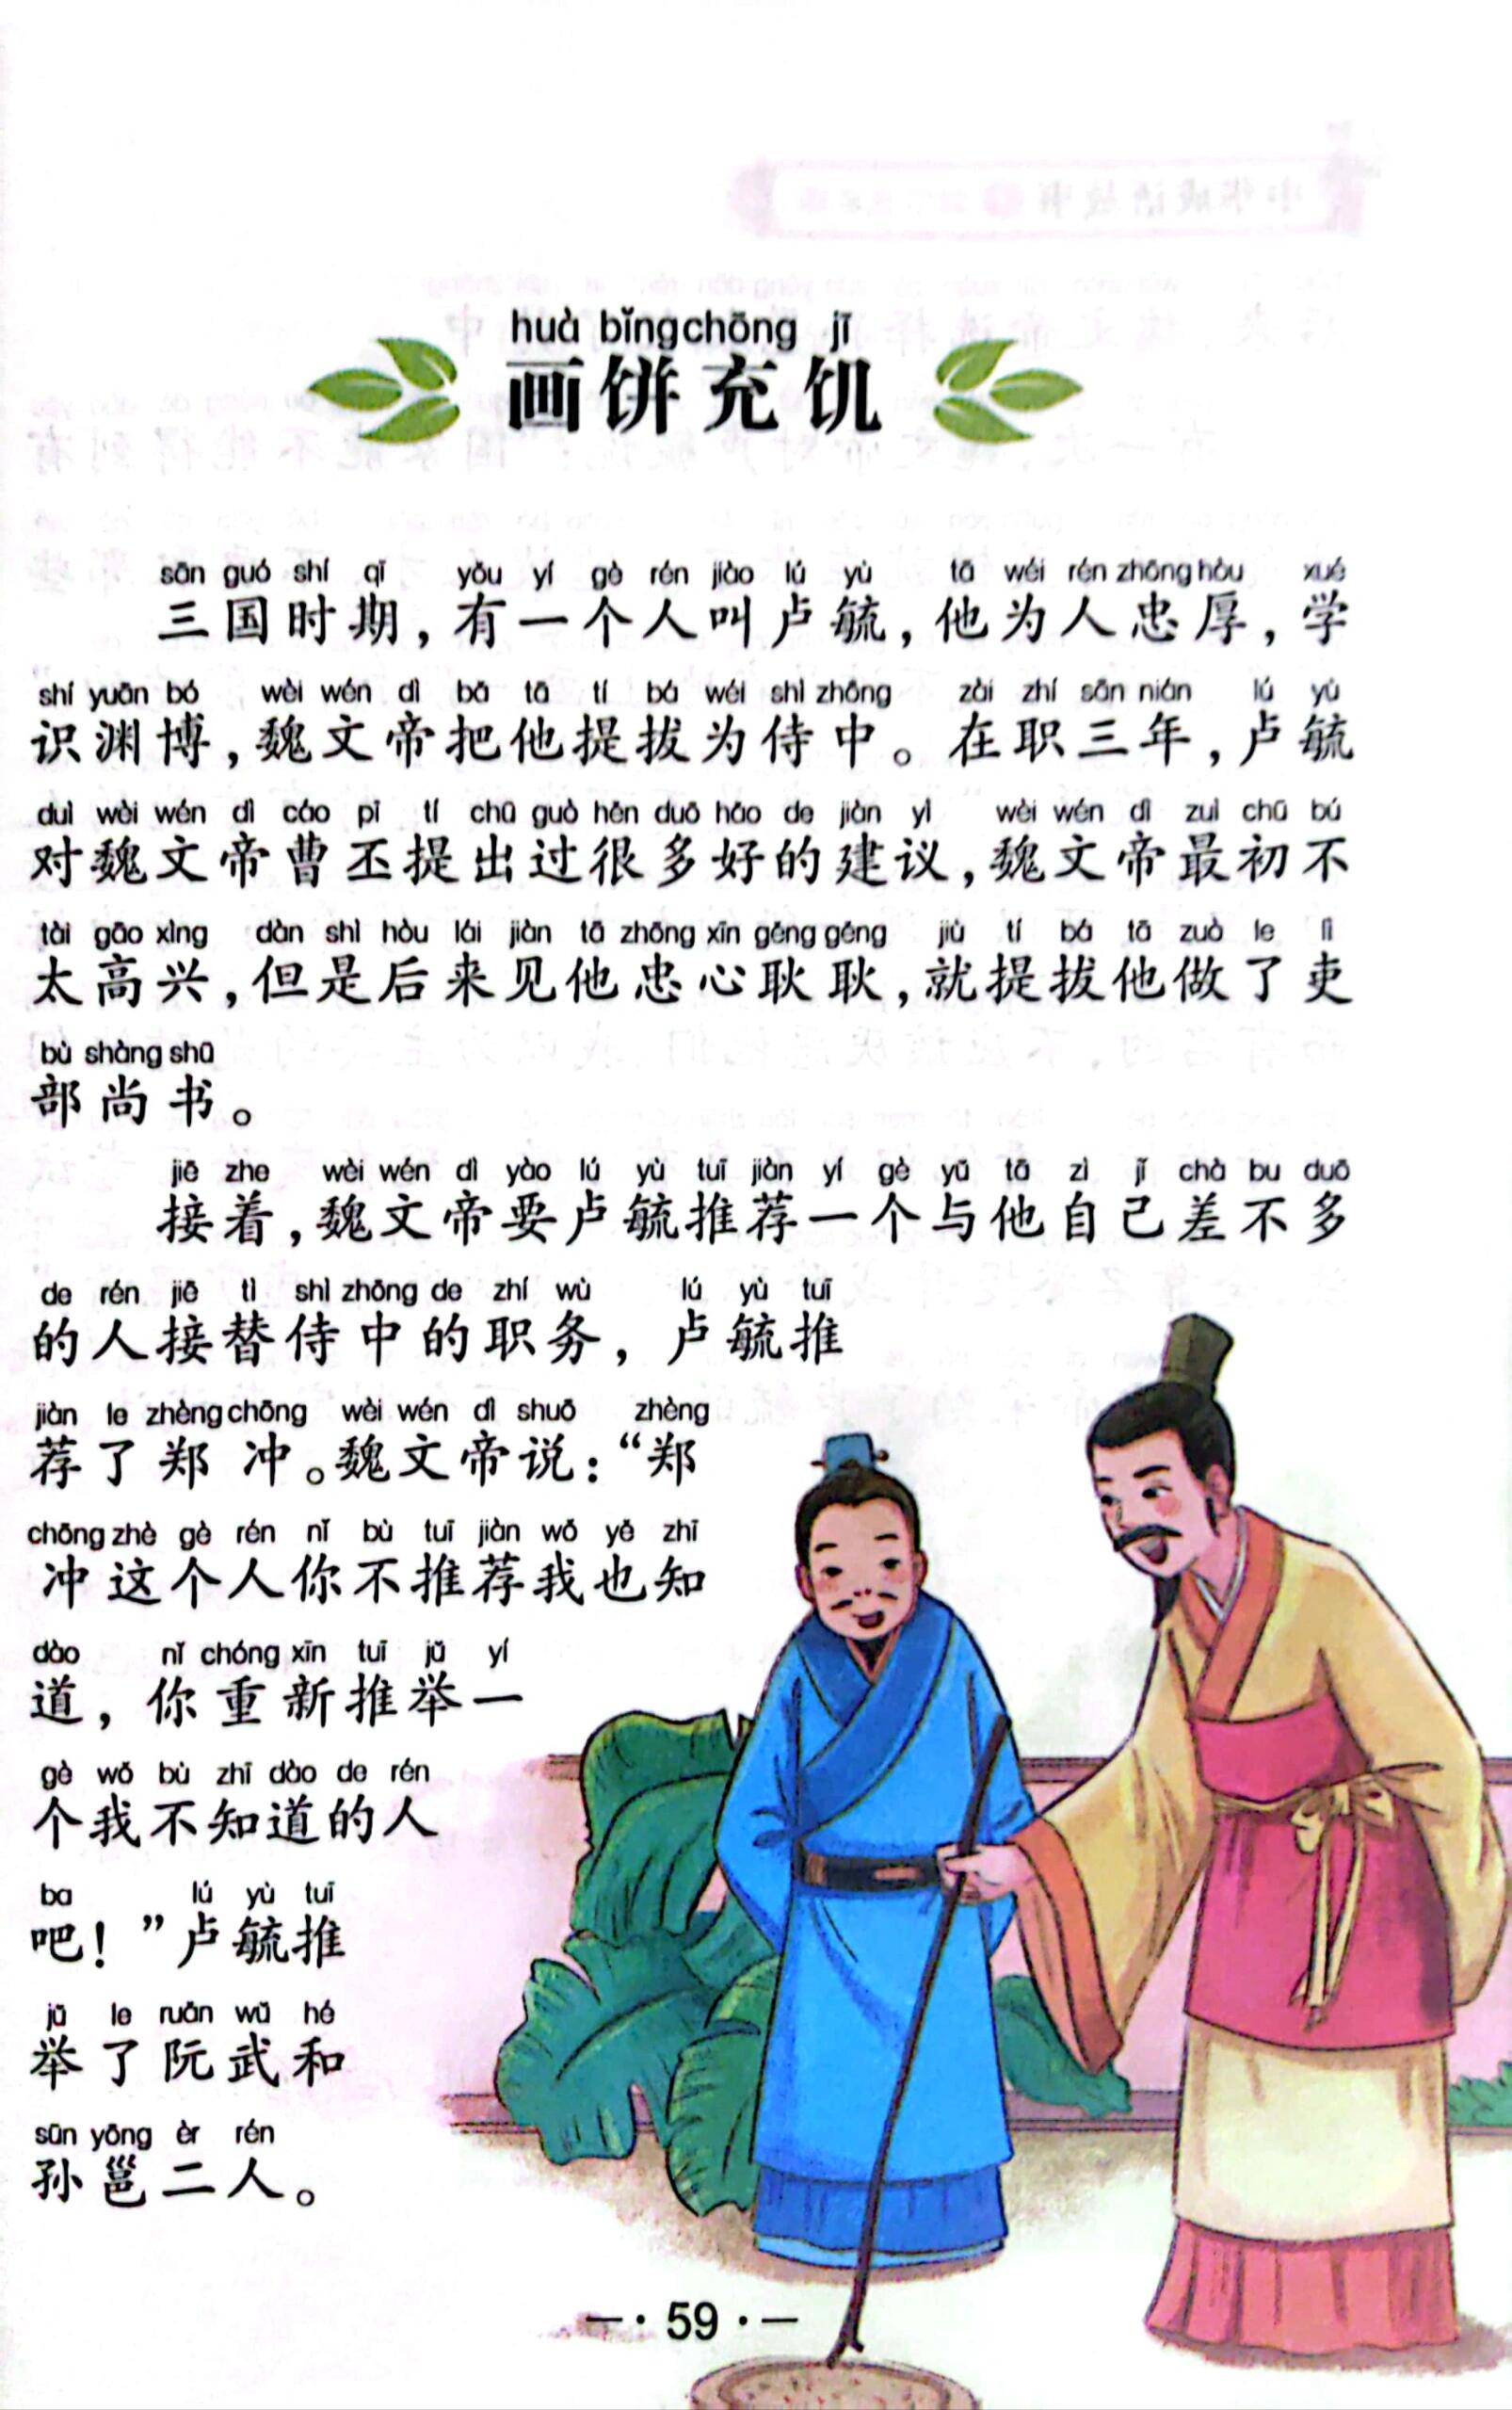 huà bǐng chōng jī
画饼充饥
sān guó shí qī yǒu yí gè rén jiào lú yù tā wéi rén zhōng hòu xué
三国时期，有一个人叫卢毓，他为人忠厚，学
shí yuān bó wèi wén dì bǎ tā tí bá wéi shì zhōng zài zhí sān nián lú yù
识渊博，魏文帝把他提拔为侍中。在职三年，卢毓
duì wèi wén dì cáo pī tí chū guò hěn duō hǎo de jiàn yì wèi wén dì zuì chū bú
对魏文帝曹丕提出过很多好的建议，魏文帝最初不
tài gāo xìng dàn shì hòu lái jiàn tā zhōng xīn gěng gěng jiù tí bá tā zuò le lì
太高兴，但是后来见他忠心耿耿，就提拔他做了吏
bù shàng shū
部尚书。
jiē zhe wèi wén dì yào lú yù tuī jiàn yí gè yǔ tā zì jǐ chà bu duō
接着，魏文帝要卢毓推荐一个与他自己差不多
de rén jiē tì shì zhōng de zhí wù lú yù tuī
的人接替侍中的职务，卢毓推
jiàn le zhèng chōng wèi wén dì shuō zhèng
荐了郑冲。魏文帝说：“郑
chōng zhè gè rén nǐ bù tuī jiàn wǒ yě zhī
冲这个人你不推荐我也知
dào nǐ chóng xīn tuī jǔ yí
道，你重新推举一
gè wǒ bù zhī dào de rén
个我不知道的人
ba lú yù tuī
吧！”卢毓推
jǔ le ruǎn wǔ hé
举了阮武和
sūn yōng èr rén
孙邕二人。
59